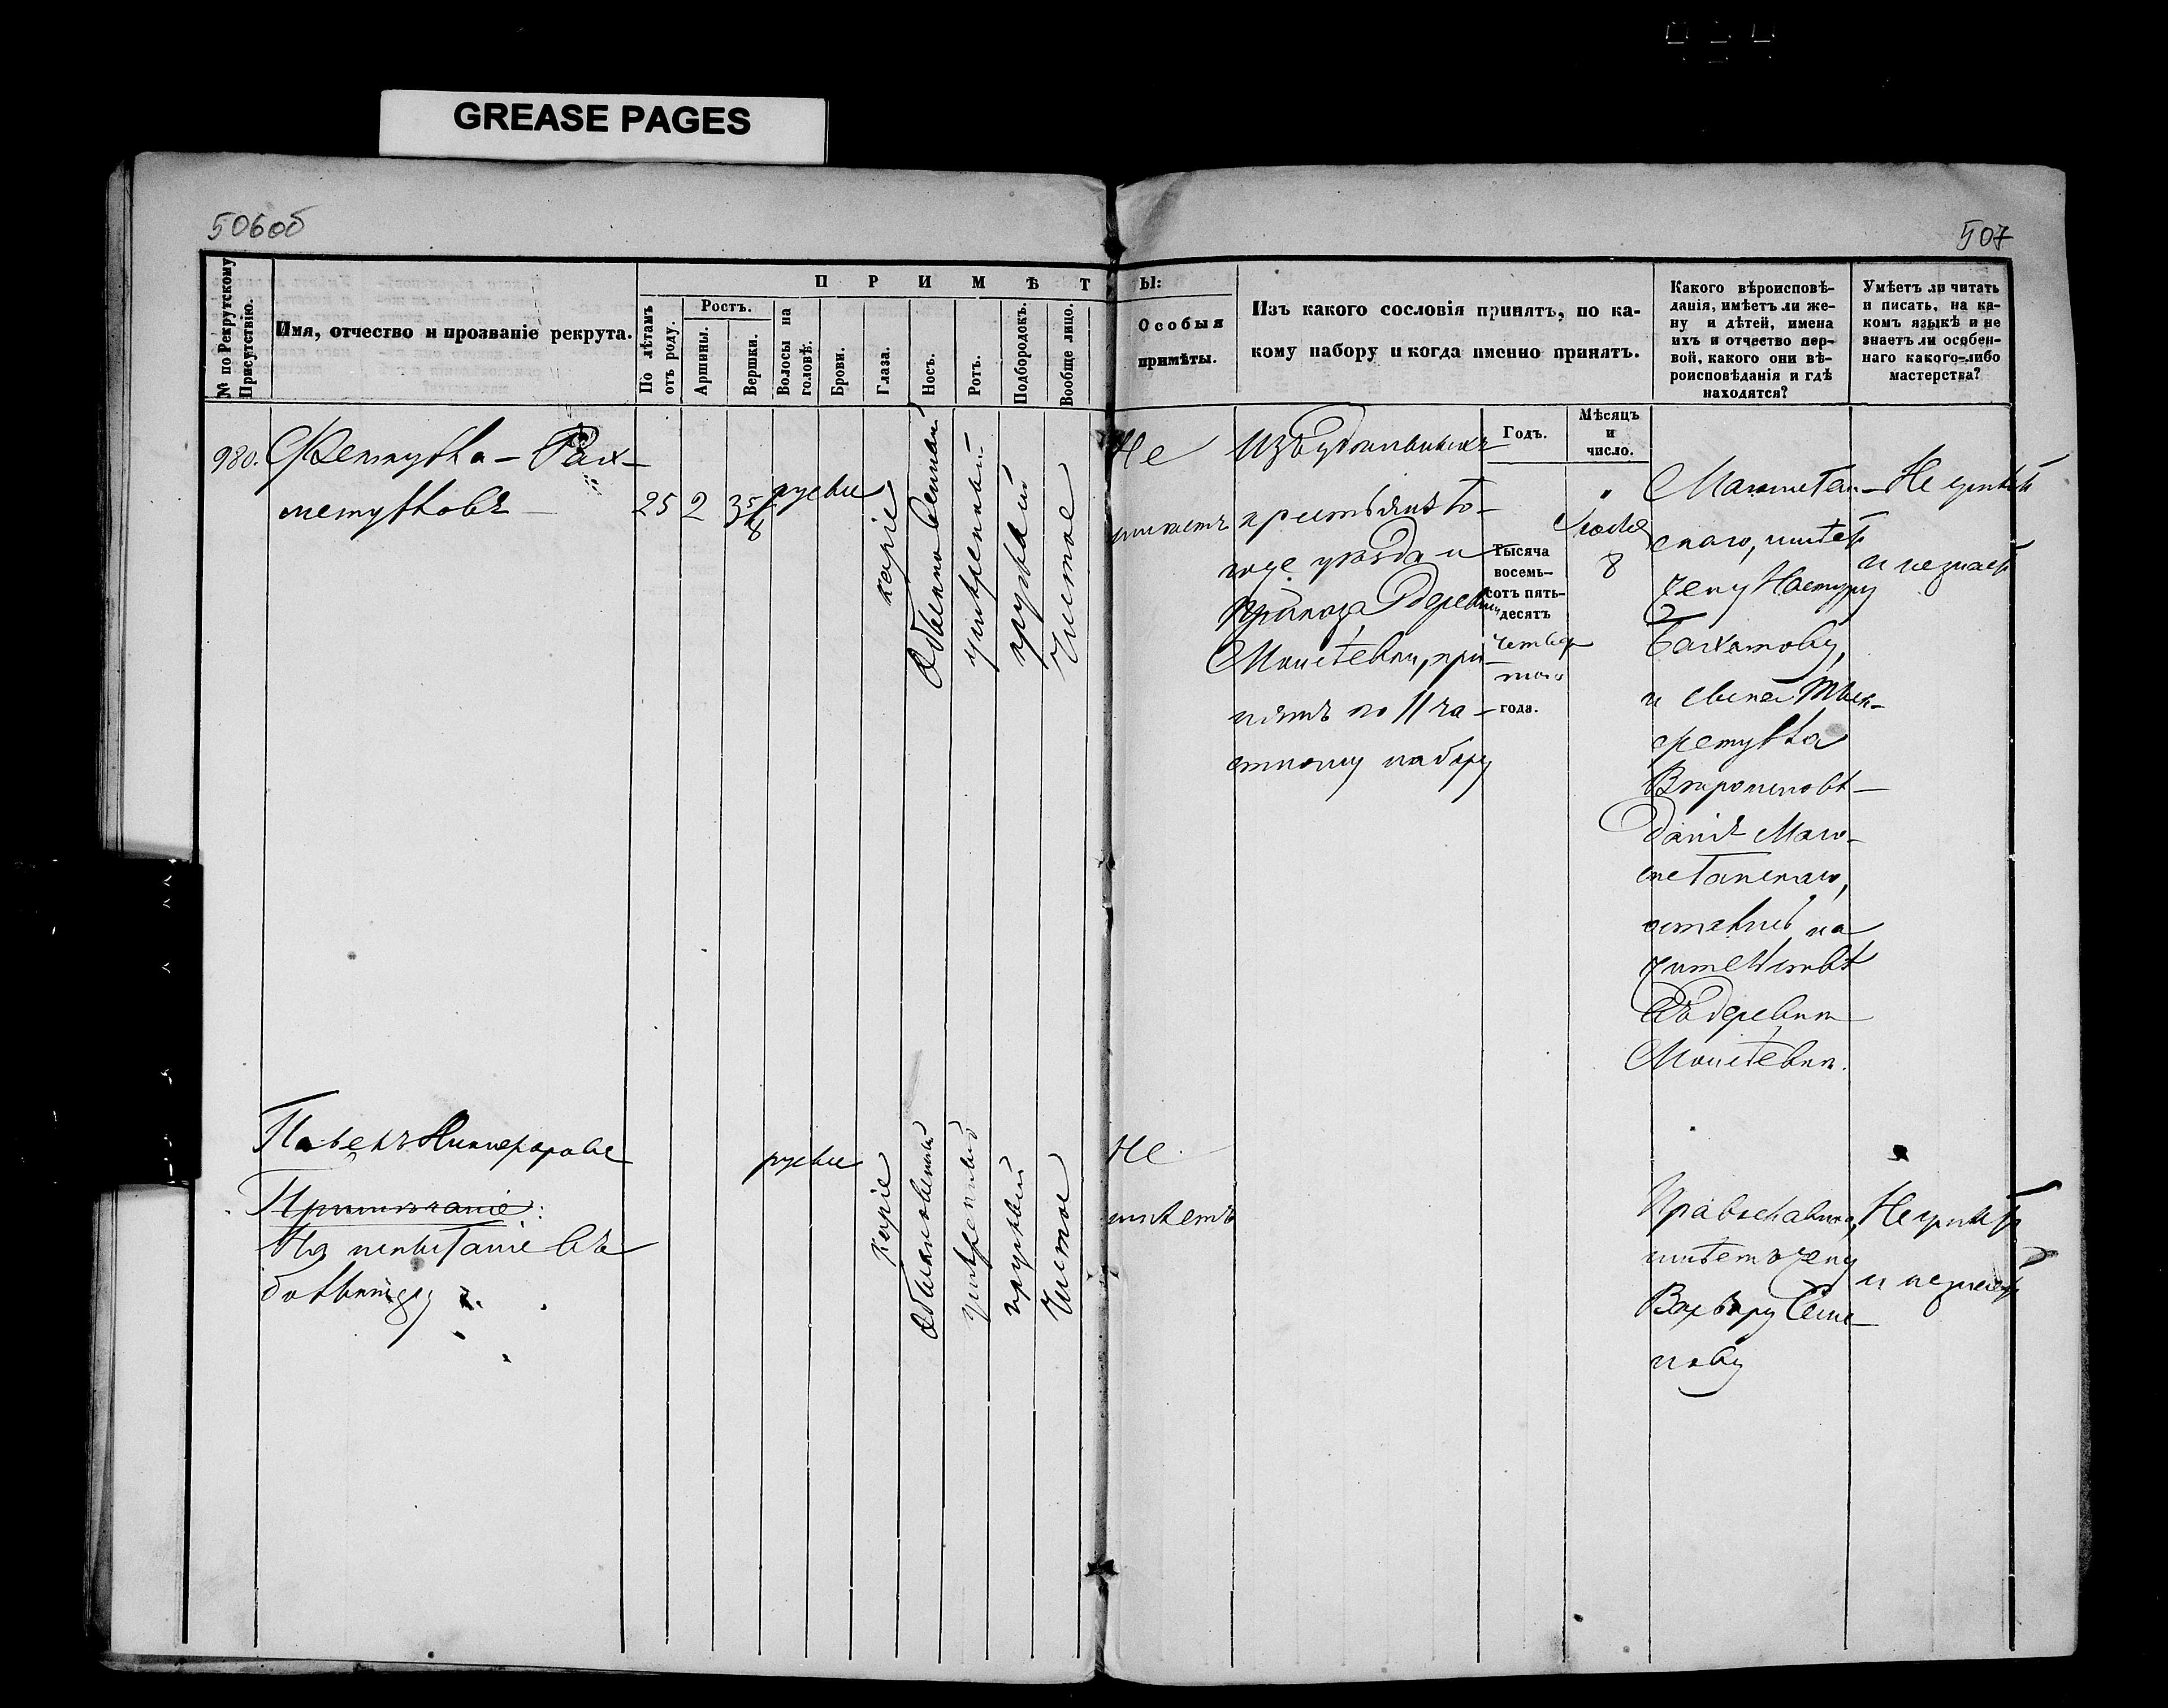 GREASE PAGES
506об
507
№ по Рекрутскому
Присутствію.
Имя, отчество и прозваніе рекрута.
ПРИМѢТЫ:
По лѣтамъ
отъ роду.
Ростъ.
Аршины.
Вершки.
Волосы на
головѣ.
Брови.
Глаза.
Носъ.
Ротъ.
Подбородокъ.
Вообще лицо.
Особыя
примѣты.
Изъ какого сословія принятъ, по ка-
кому набору и когда именно принятъ.
Какого вѣроисповѣ-
данія, имѣетъ ли же-
ну и дѣтей, имена
ихъ и отчество пер-
вой, какого они вѣ-
роисповѣданія и гдѣ
находятся?
Умѣетъ ли читать
и писать, на ка-
комъ языкѣ и не
знаетъ ли особен-
наго какого-либо
мастерства?
980.
Феткулла Рах-
меткуловъ
25
2
3 5/8
русые
каріе
Обыкновенный
умѣренный
круглый
Чистое
Не
имѣетъ
Изъ удѣльныхъ
крестьянъ то-
го же уѣзда и
Приказа деревни
при-
нятъ по 11 ча-
стному набору
Годъ.
Тысяча
восемь-
сотъ пять-
десятъ
четвер
таго
года.
Мѣсяцъ
и
число.
8
Магометан-
скаго, имѣетъ
жену
и сына
Вѣроисповѣ-
данія Маго-
метанскаго,
на
жительствѣ
въ деревнѣ
Не умѣетъ
и не знаетъ
Павелъ Никифоровъ
Примѣчаніе:
На испытаніе въ
больницу
русые
каріе
Обыкновенный
умѣренный
круглый
Чистое
Не
имѣетъ
Православнаго,
имѣетъ жену
Варвару Семе-
нову
Не умѣетъ
и не знаетъ